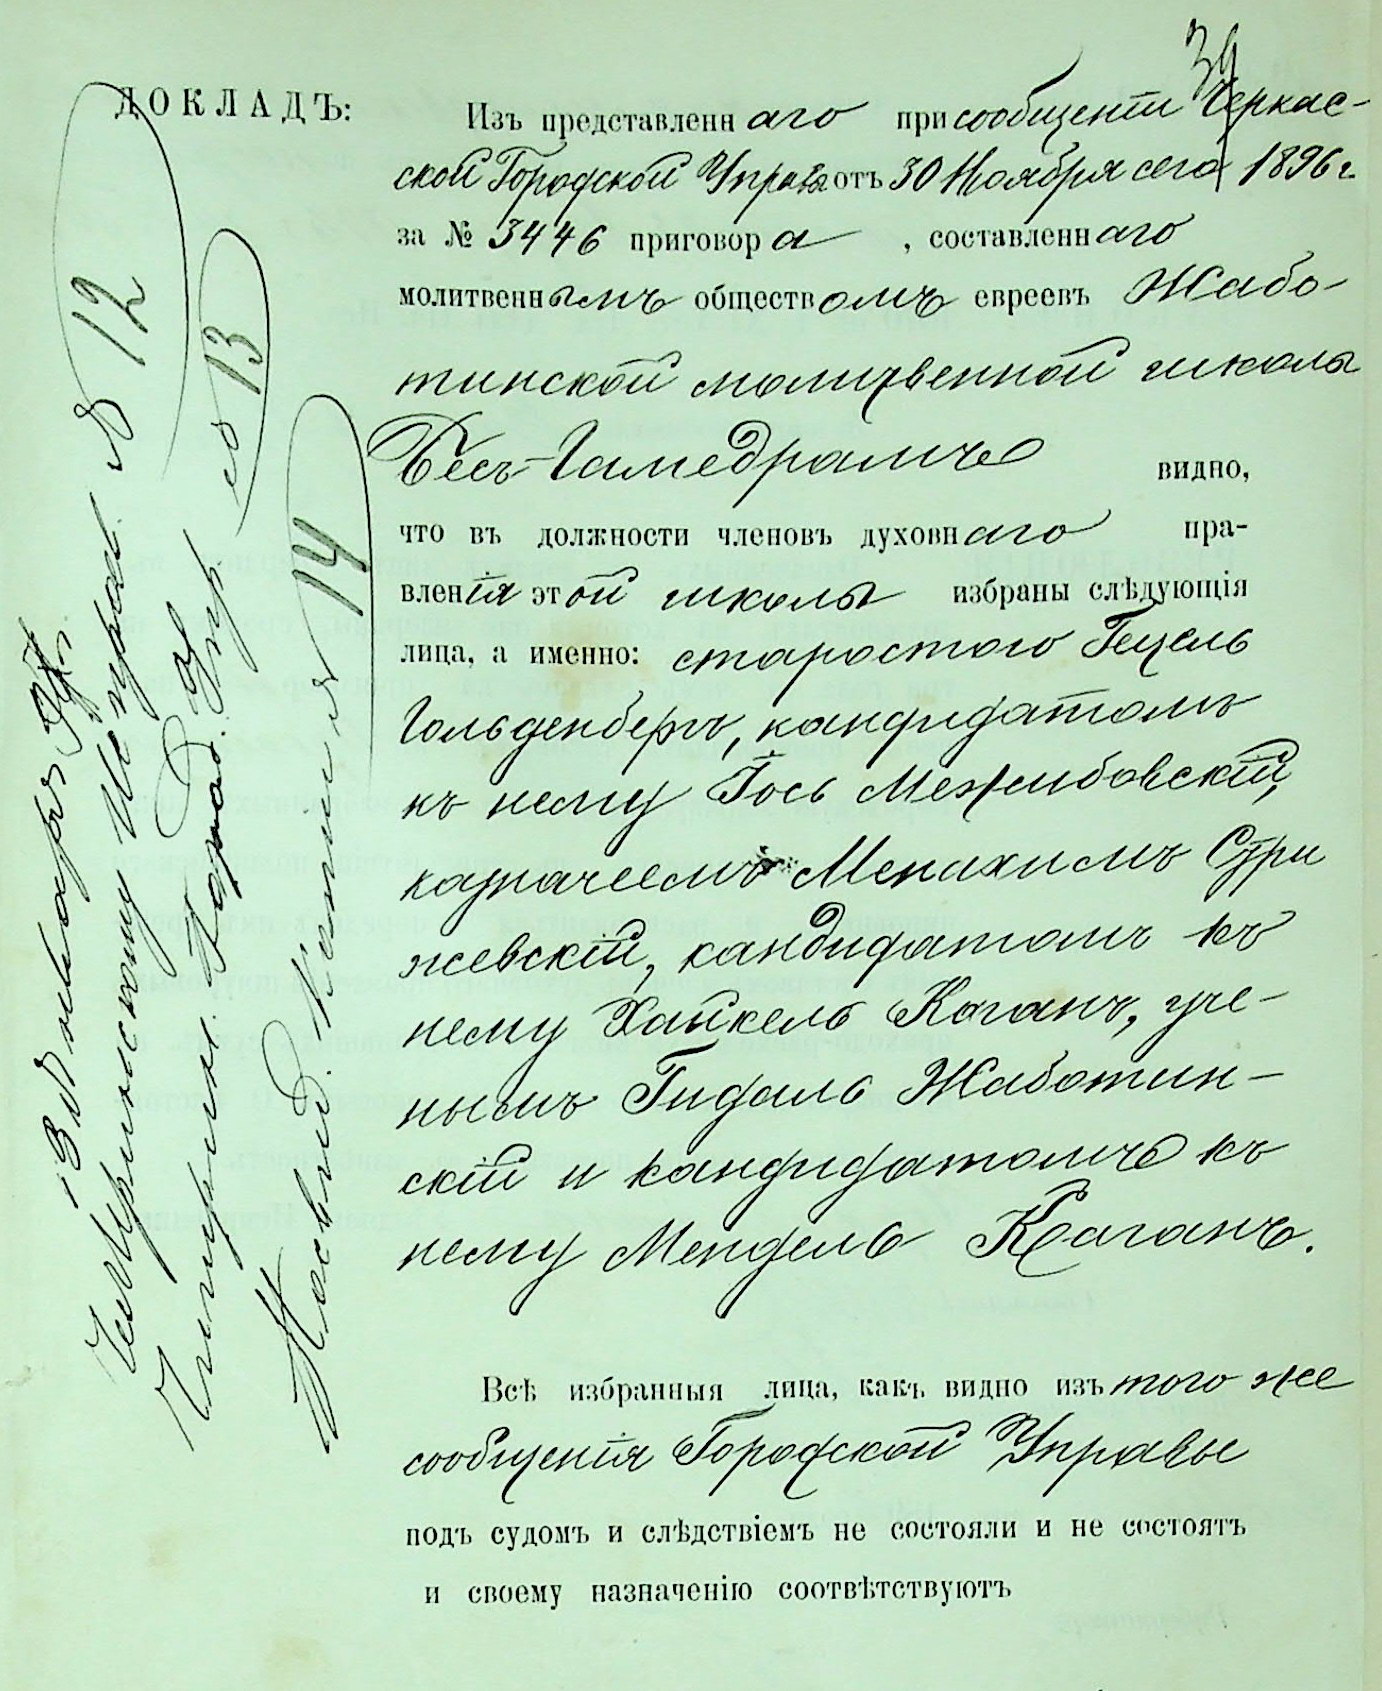 39
ДОКЛАДЪ:
Изъ представленнаго при сообщеніи Черкас-
ской Городской Управы отъ 30 Ноября сего 1896 г.
за № 3446 приговора, составленнаго
молитвеннымъ обществомъ евреевъ Жабо-
тинской молитвенной школы
Бесъ-Гамедрашъ видно,
что въ должности членовъ духовнаго пра-
вленія этой школы избраны слѣдующія
лица, а именно: старостою Гецель
Гольденбергъ, кандидатомъ
къ нему Іось Межибовскій,
казначеемъ Менахимъ Стри
жевскій, кандидатомъ къ
нему Хайкель Каганъ, уче-
нымъ Гидаль Жаботин-
скій и кандидатомъ къ
нему Мендель Каганъ.
Всѣ избранныя лица, какъ видно изъ того же
сообщенія Городской Управы
подъ судомъ и слѣдствіемъ не состояли и не состоятъ
и своему назначенію соотвѣтствуютъ
3 Января 97 г.
Чигиринскому Исправ. № 12
Чигирин. Город. Упр № 13
№ 14